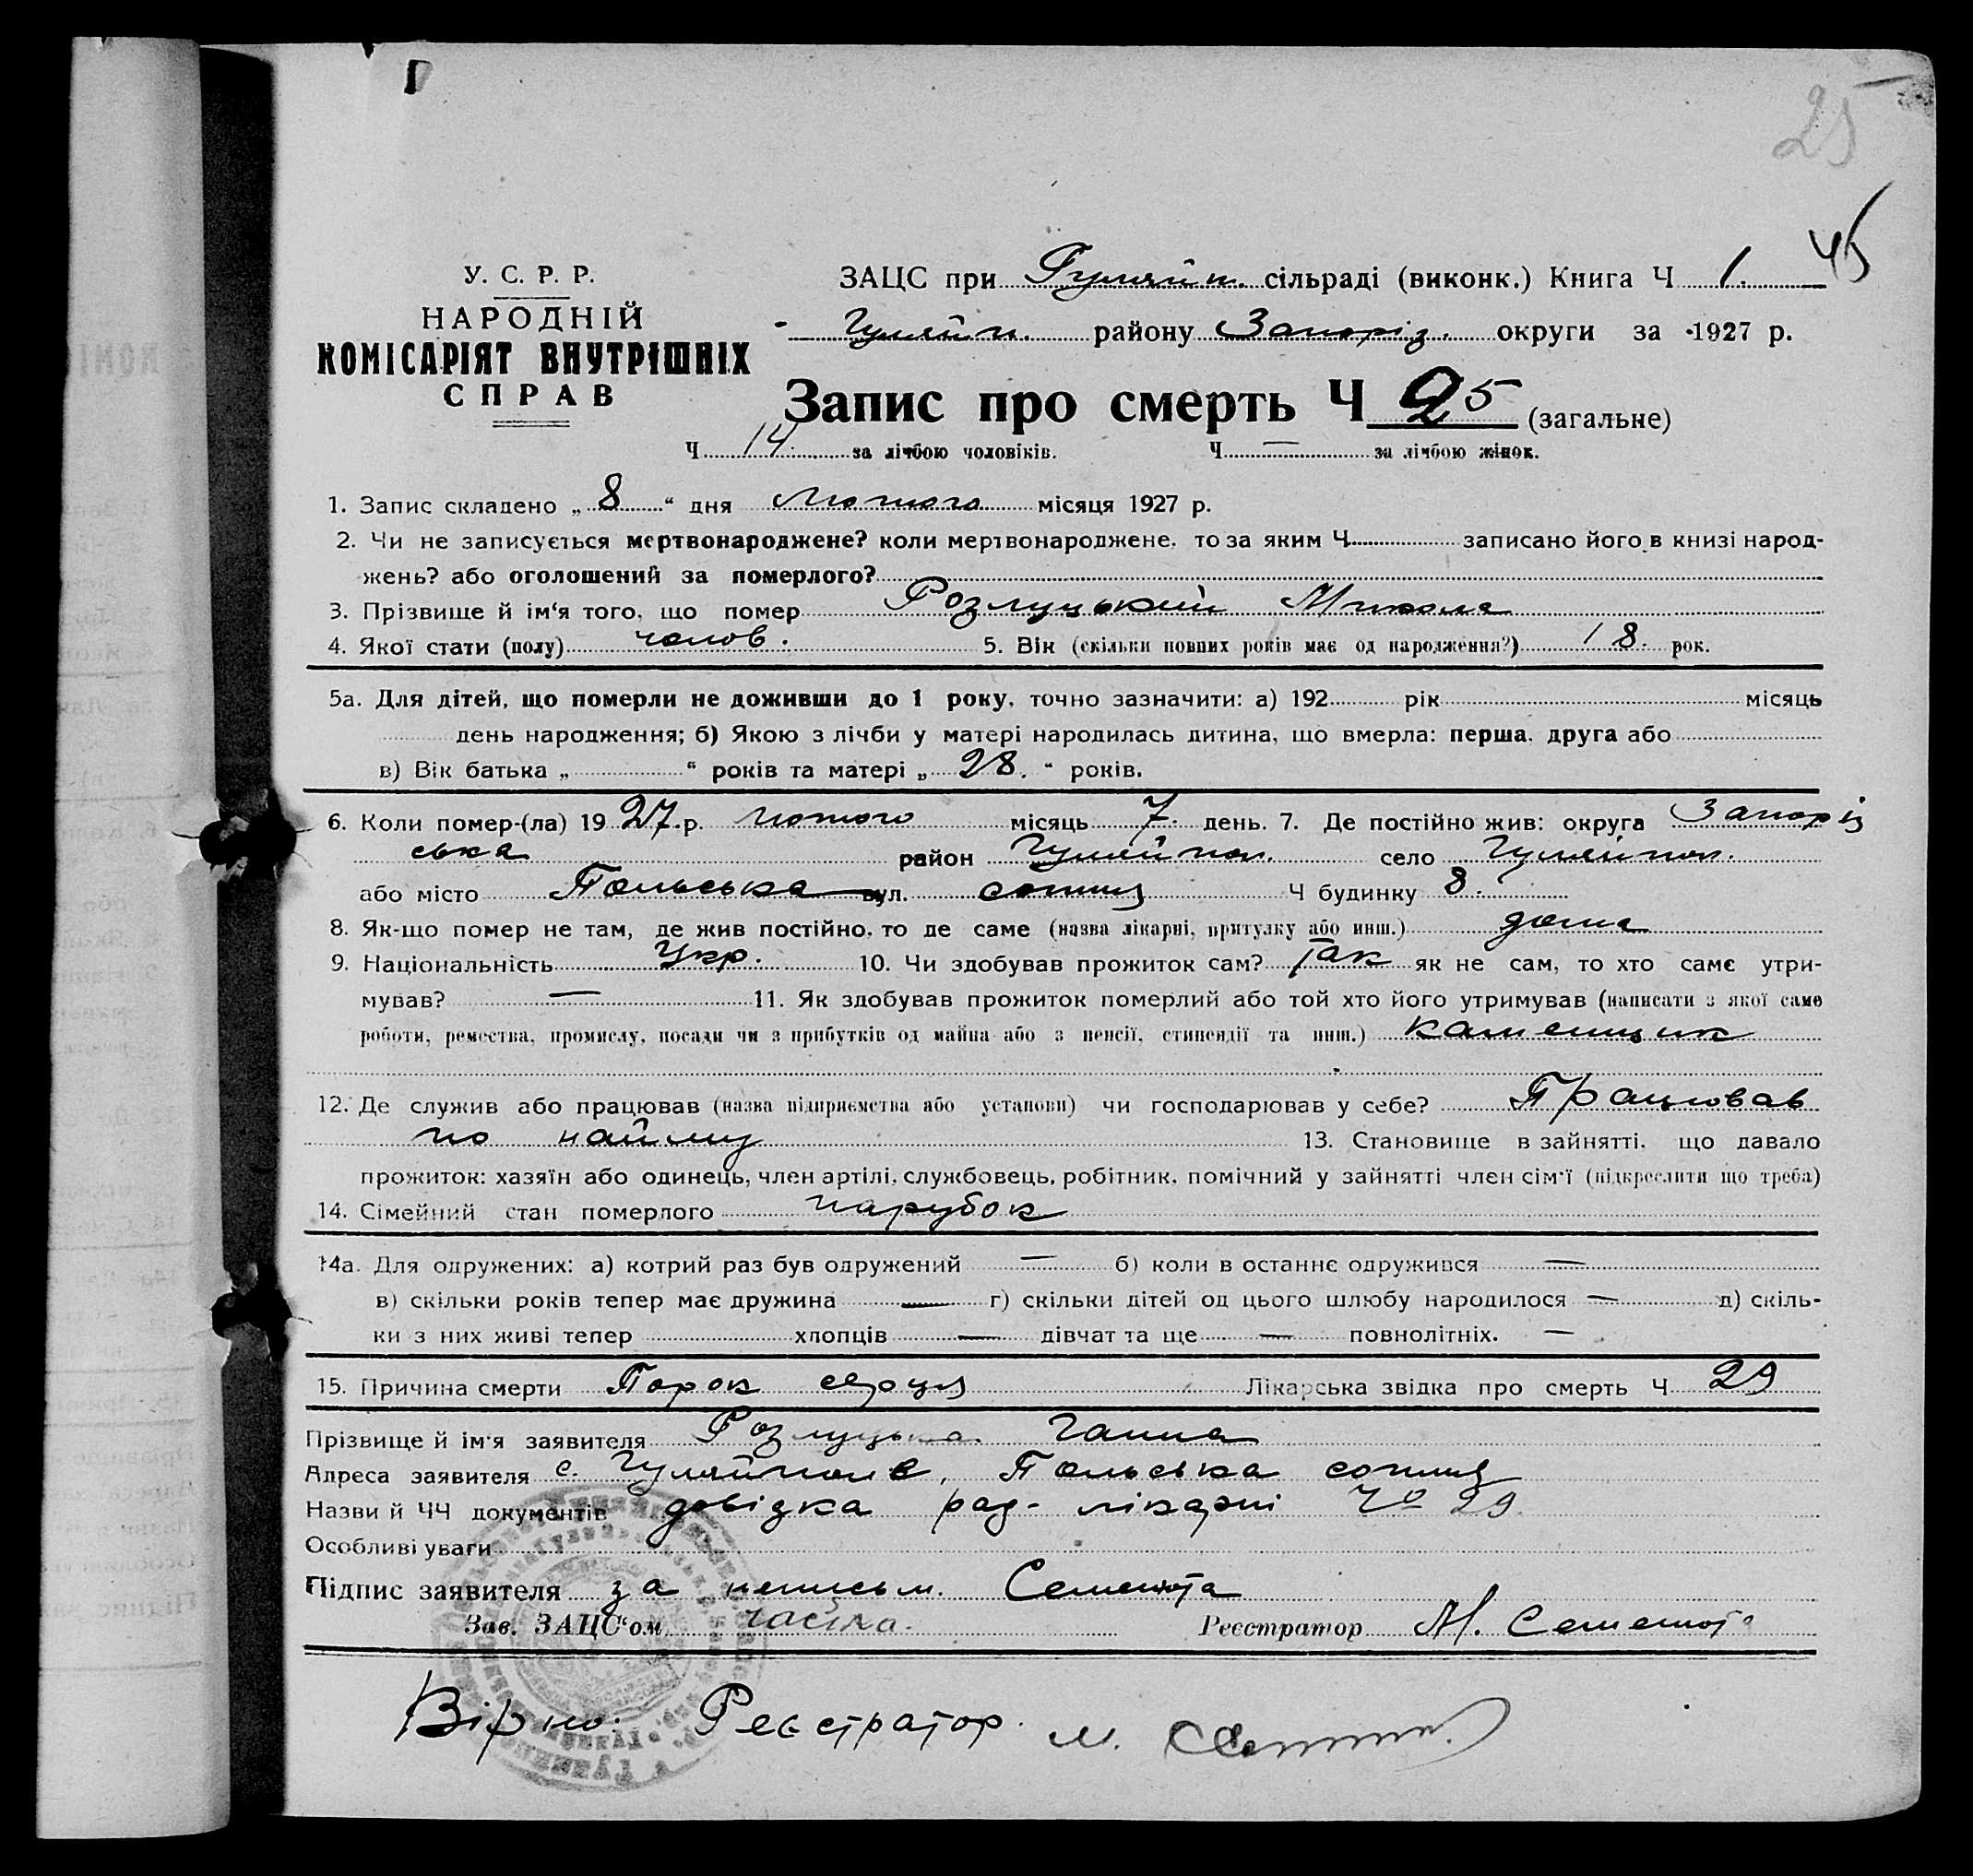 25
45
У. С. Р. Р.
НАРОДНІЙ
КОМІСАРІЯТ ВНУТРІШНІХ
СПРАВ
ЗАЦС при Гуляйп. сільраді (виконк.) Книга Ч 1.
Гуляйп. району Запоріз. округи за 1927 р.
Запис про смерть Ч 25 (загальне)
Ч 14 за лічбою чоловіків. Ч — за лічбою жінок.
1. Запис складено „ 8 “ дня лютого місяця 1927 р.
2. Чи не записується мертвонароджене? коли мертвонароджене, то за яким Ч записано його в книзі народ-
жень? або оголошений за померлого?
3. Прізвище й ім‘я того, що помер Розлуцький Микола
4. Якої стати (полу) чолов. 5. Вік (скільки повних років має од народження?) 18. рок.
5а. Для дітей, що померли не доживши до 1 року, точно зазначити: а) 192 рік місяць
день народження; б) Якою з лічби у матері народилась дитина, що вмерла: перша, друга або
в) Вік батька „ “ років та матері „ 28. “ років.
6. Коли помер-(ла) 1927 р. лютого місяць 7. день. 7. Де постійно жив: округа Запоріз
ська район Гуляйпол. село Гуляйпол.
або місто Польська вул. сотня Ч будинку 8.
8. Як-що помер не там, де жив постійно, то де саме (назва лікарні, притулку або инш.) дома
9. Національність Укр. 10. Чи здобував прожиток сам? Так як не сам, то хто саме утри-
мував? — 11. Як здобував прожиток померлий або той хто його утримував (написати з якої саме
роботи, ремества, промислу, посади чи з прибутків од майна або з пенсії, стипендії та инш.) каменщик
12. Де служив або працював (назва підприємства або установи) чи господарював у себе? Працював
по найму 13. Становище в зайнятті, що давало
прожиток: хазяїн або одинець, член артілі, службовець, робітник, помічний у зайнятті член сім'ї (підкреслити що треба)
14. Сімейний стан померлого парубок
14а. Для одружених: а) котрий раз був одружений — б) коли в останнє одружився —
в) скільки років тепер має дружина — г) скільки дітей од цього шлюбу народилося — д) скіль-
ки з них живі тепер хлопців — дівчат та ще — повнолітніх. —
15. Причина смерти Порок серця Лікарська звідка про смерть Ч 29
Прізвище й ім'я заявителя Розлуцька Ганна
Адреса заявителя с. Гуляйполе, Польська сотня
Назви й ЧЧ документів довідка рад- лікарні Ч° 29.
Особливі уваги
Підпис заявителя за неписьм. Семенюта
Зав. ЗАЦС‘ом Чайка. Реєстратор М. Семенюта
Вірно: Реєстратор М.